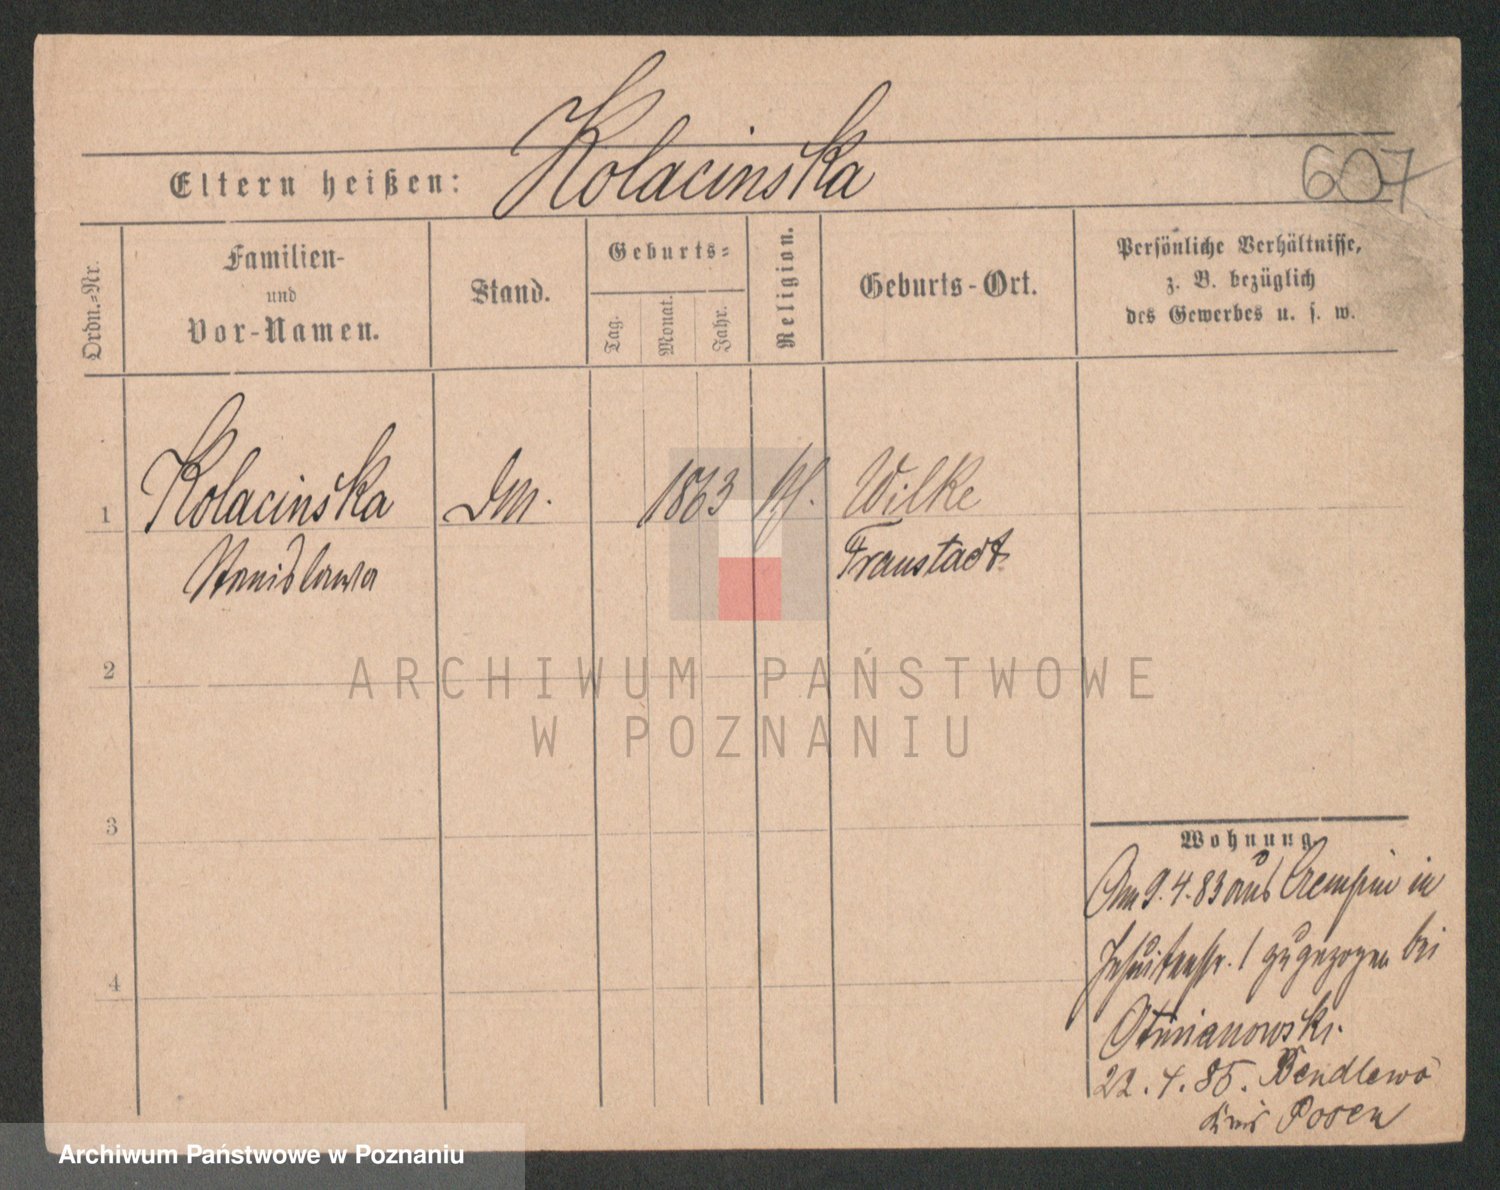 Kolacinska
Eltern heißen:
607
Ordn.=Nr.
Familien-
und
Vor-Namen.
Stand.
Geburts=
Tag.
Monat.
Jahr.
Religion.
Geburts-Ort.
Persönliche Verhältnisse,
z. B. bezüglich
des Gewerbes u. s. w.
1
Kolacinska
Stanislawa
1863
Wilke
Fraustadt
2
ARCHIWUM PAŃSTWOWE
W POZNANIU
3
4
Wohnung
Am 9.4.83 aus Czempin in
Jesuitenstr. 1 zugezogen bei
22.4.85. Bendlewo
Kreis Posen
Archiwum Państwowe w Poznaniu